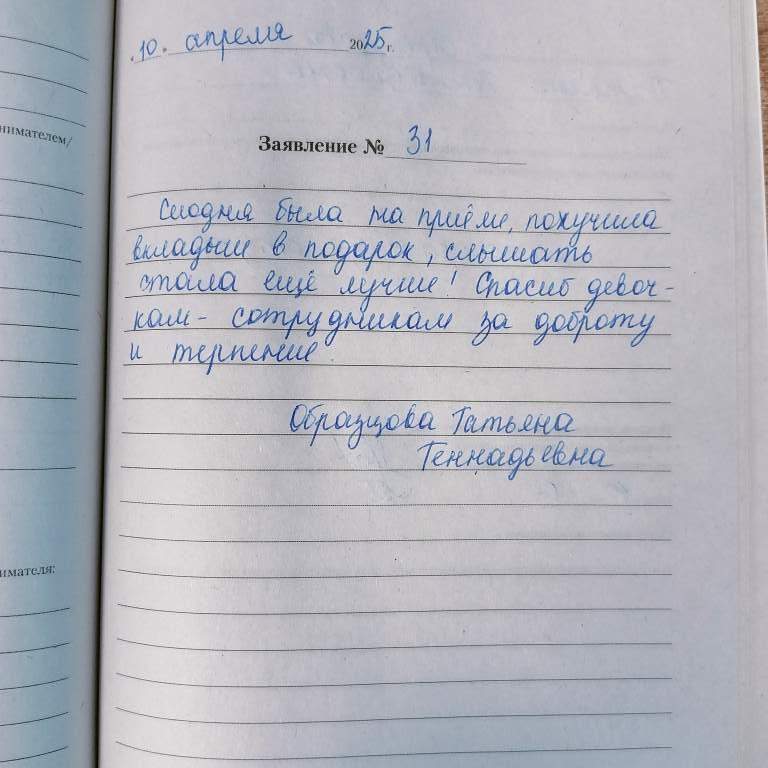 .10. апреля 2025г.
нимателем/
Заявление № 31
Сегодня была на приёме, получила
вкладыш в подарок, слышать
стала ещё лучше! Спасиб девоч-
кам - сотрудникам за доброту
и терпение
Образцова Татьяна
Геннадьевна
имателя: